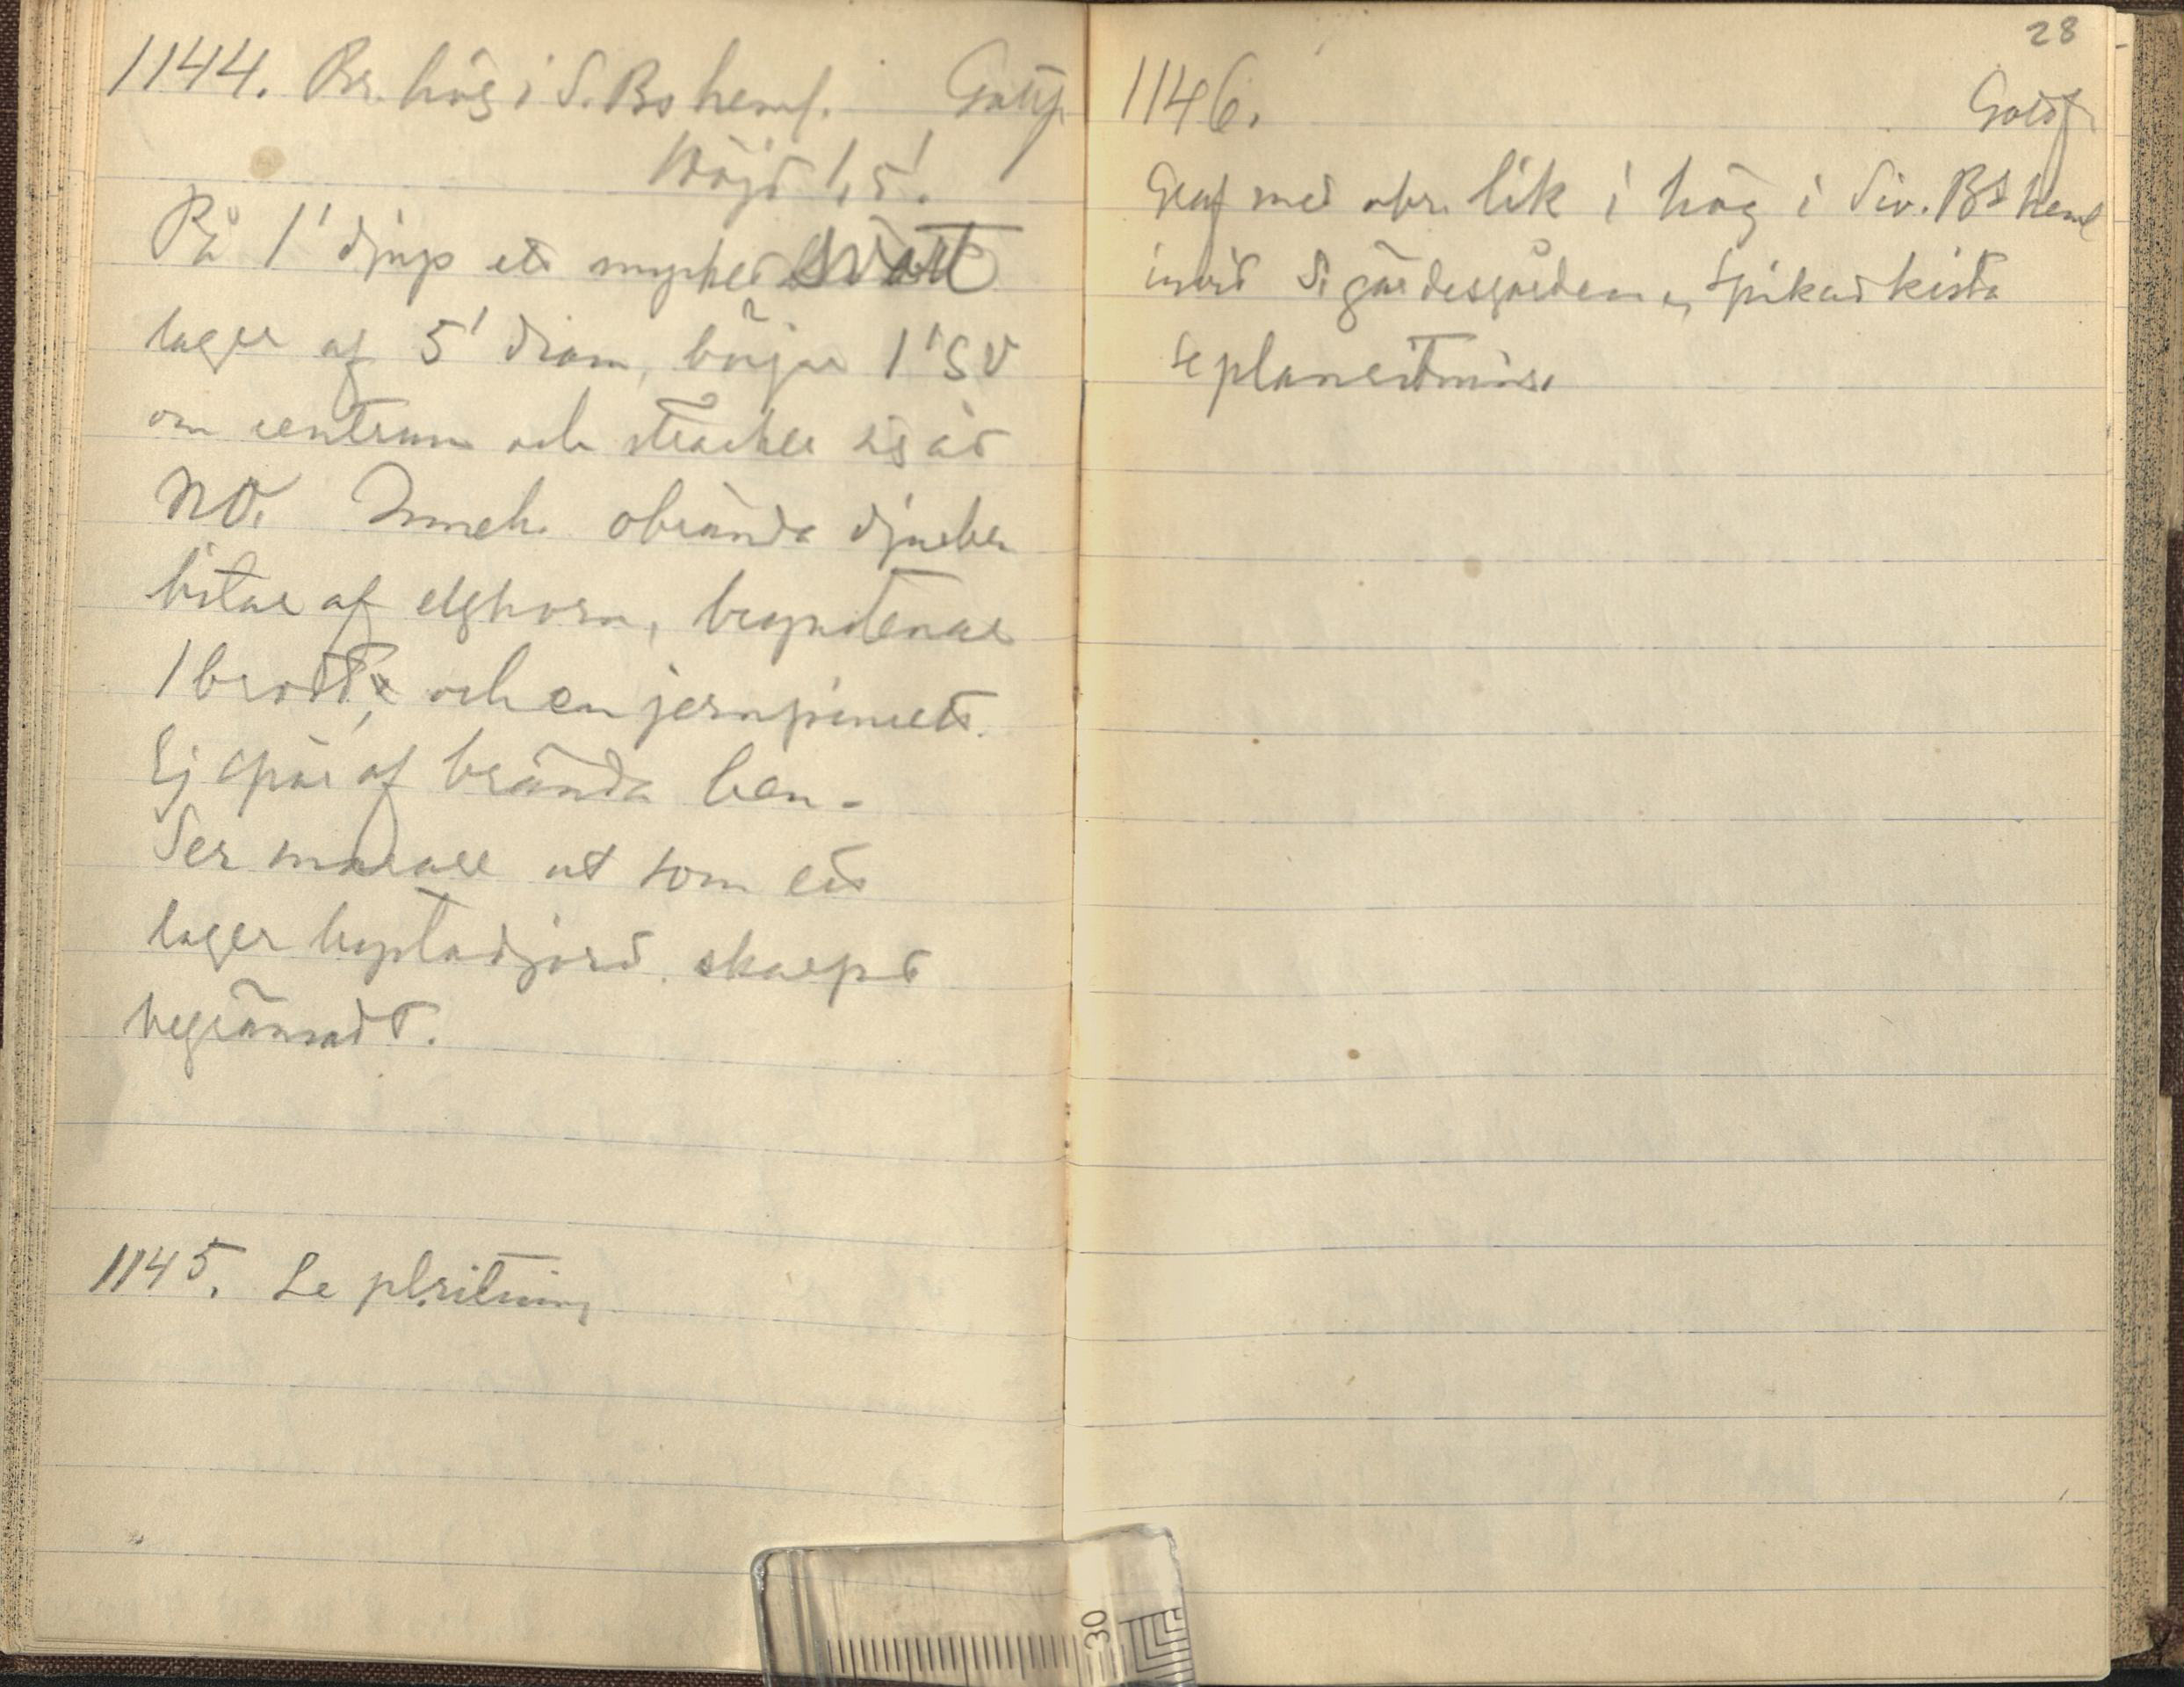 1144. Br. hög i S. Bs heml. Gottf.
Höjd 1,5'.
På 1' djup ett mycket svart
lager af 5' diam, börjar 1' SV
om centrum och sträcker sig åt
NO. Inneh. obrända djurben
bitar af elghorn, brynstenar
1 brodd, och en jernpincett.
Ej spår af brända ben.
Ser snarare ut som ett
lager bruten jord skarpt
begränsadt.
1145. Se pl.ritning
28
1146. Gottf
Graf med obr. lik i hög i Siv. Bs heml
invid S. gärdesgården, spikad kista
se planritning.